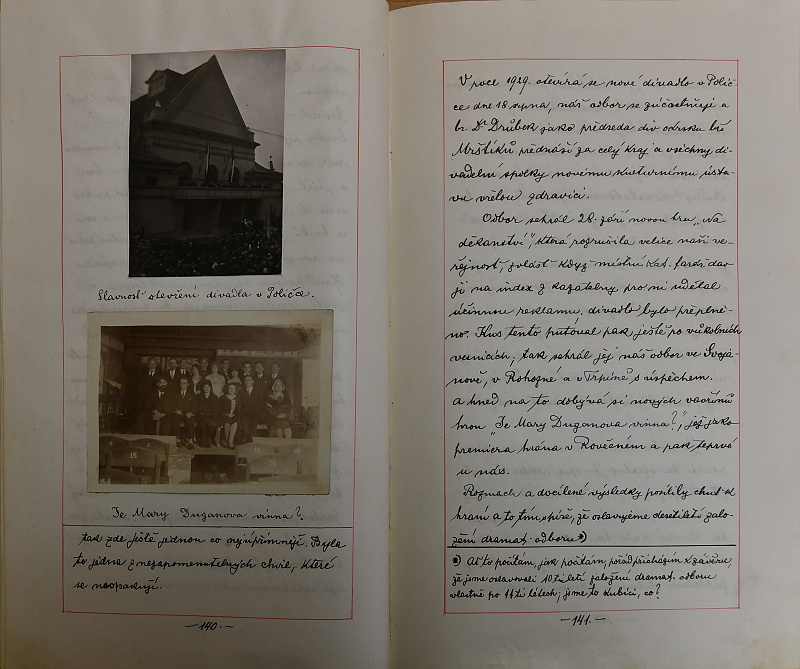 Slavnost otevření divadla v Poličce.
Je Mary Duganova vinna?
tak zde ještě jednou co nejupřímněji. Byla
to jedna z nezapomenutelných chvil, které
se neopakují.
-140.-
V roce 1929. otevírá se nové divadlo v Polič-
ce dne 18 srpna, náš odbor se zúčastňuje a
br. Dr Drůbek jako předseda div. okrsku bří
Mrštíků přednáší za celý kraj a všechny di-
vadelní spolky novému kulturnímu ústa-
vu vřelou zdravici.
Odbor sehrál 28. září novou hru „Na
děkanství", která rozrušila velice naši ve-
řejnost, zvlášt když místní kat. farář dav
ji na index z kazatelny pro ni udělal
účinnou reklamu. divadlo bylo přeplně-
no. Kus tento putoval pak ještě po vůkolních
vesnicích, tak sehrál jej náš odbor ve Svoja-
nově, v Rohozné a v Trpíně s úspěchem.
a hned na to dobývá si nových vavřínů
hrou „Je Mary Duganova vinna?", jež jako
premiera hrána v Rovečném a pak teprve
u nás.
Rozmach a docílené výsledky posílily chuť k
hraní a to tím spíše, že oslavujeme desítiletí zalo-
žení dramat. odboru *)
*) Ať to počítám, jak počítám, pořád přicházím k závěru,
že jsme oslavovali 10ti letí založení dramat. odboru
vlastně po 11ti létech; jsme to kubíci, co?
-141.-